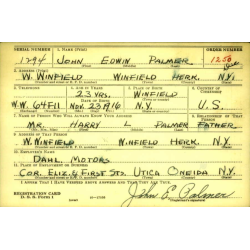 SERIAL NUMBER 1. NAME (Print) ORDER NUMBER
1794 JOHN EDWIN PALMER 1250
2. ADDRESS (Print)
W. WINFIELD WINFIELD HERK. N.Y.
3. TELEPHONE 4. AGE IN YEARS 5. PLACE OF BIRTH 6. COUNTRY OF CITIZENSHIP
23 YRS. WINFIELD
W.W. 64F11 NOV 23 1916 N.Y. U.S.
7. NAME OF PERSON WHO WILL ALWAYS KNOW YOUR ADDRESS 8. RELATIONSHIP OF THAT PERSON
MR. HARRY L PALMER FATHER
9. ADDRESS OF THAT PERSON
W. WINFIELD WINFIELD HERK. N.Y.
10. EMPLOYER'S NAME
DAHL MOTORS
11. PLACE OF EMPLOYMENT OR BUSINESS
COR. ELIZ. & FIRST STS. UTICA ONEIDA N.Y.
I AFFIRM THAT I HAVE VERIFIED ABOVE ANSWERS AND THAT THEY ARE TRUE.
REGISTRATION CARD
D. S. S. FORM 1
John E. Palmer